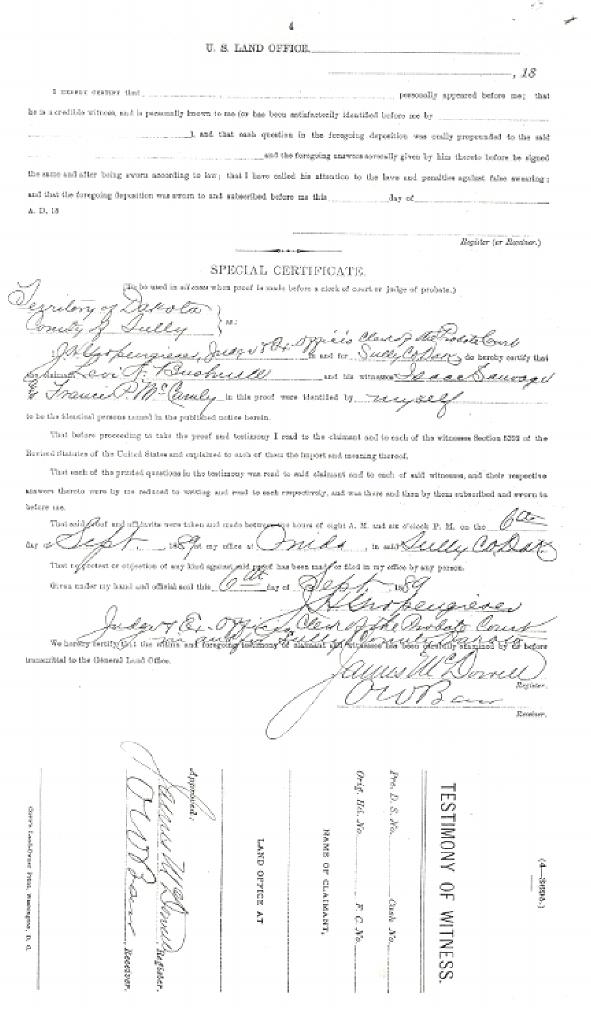 4
U. S. LAND OFFICE
, 18
I HEREBY CERTIFY that personally appeared before me; that
he is a credible witness, and is personally known to me (or has been satisfactorily identified before me by
), and that each question in the foregoing deposition was orally propounded to the said
and the foregoing answers severally given by him thereto before he signed
the same and after being sworn according to law; that I have called his attention to the laws and penalties against false swearing;
and that the foregoing deposition was sworn to and subscribed before me this day of
A. D. 18
Register (or Receiver.)
SPECIAL CERTIFICATE.
(To be used in all cases when proof is made before a clerk of court or judge of probate.)
Territory of Dakota
County of Sully } ss:
J H Gropengieser, Judge & Ex. officio Clerk of the Probate Court
in and for Sully Co Dak do hereby certify that
the claimant Levi and his witnesses Isaac Sauvage
Francis P. in this proof were identified by myself
to be the identical persons named in the published notice herein.
That before proceeding to take the proof and testimony I read to the claimant and to each of the witnesses Section 5392 of the
Revised Statutes of the United States and explained to each of them the import and meaning thereof.
That each of the printed questions in the testimony was read to said claimant and to each of said witnesses, and their respective
answers thereto were by me reduced to writing and read to each respectively, and was there and then by them subscribed and sworn to
before me.
That said proof and affidavits were taken and made between the hours of eight A. M. and six o'clock P. M. on the 6th
day of Sept. 1889 at my office at Onida, in said Sully Co Dak.
That no protest or objection of any kind against said proof has been made or filed in my office by any person.
Given under my hand and official seal this 6th day of Sept. 1889
J H Gropengieser
Judge & Ex-officio Clerk of the Probate Court
in and for Sully County Dakota
We hereby certify that the within and foregoing testimony of claimant and witnesses has been carefully examined by us before
transmittal to the General Land Office.
James McDowell
Register.
O W Bair
Receiver.
(4—369a.)
TESTIMONY OF WITNESS.
Pre. D. S. No. Cash No.
Orig. Hd. No. F. C. No.
NAME OF CLAIMANT.
LAND OFFICE AT
Approved:
James McDowell Register.
O W Bair Receiver.
Washington, D. C.